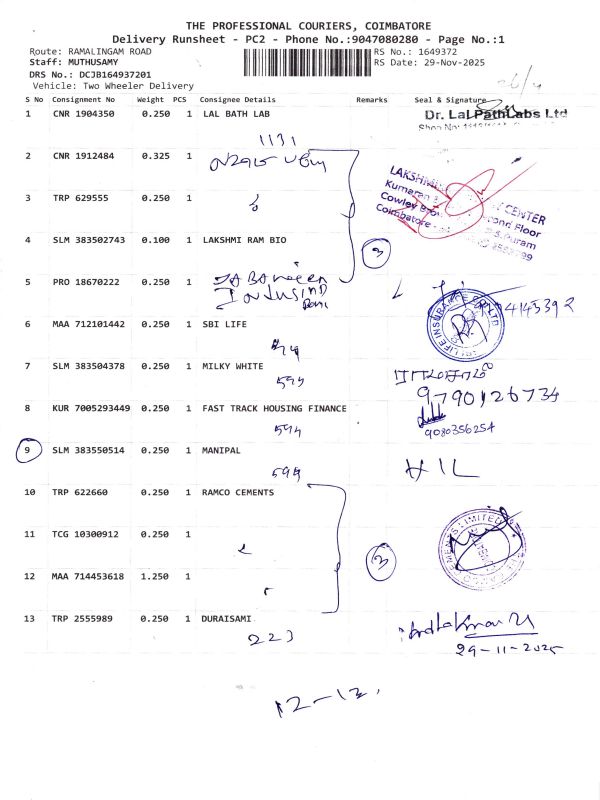 THE PROFESSIONAL COURIERS, COIMBATORE
Delivery Runsheet - PC2 - Phone No.:9047080280 - Page No.:1
Route: RAMALINGAM ROAD
RS No.: 1649372
Staff: MUTHUSAMY
RS Date: 29-Nov-2025
DRS No.: DCJB164937201
Vehicle: Two Wheeler Delivery
S No Consignment No Weight PCS Consignee Details Remarks Seal & Signature
1 CNR 1904350 0.250 1 LAL BATH LAB
Dr. Lal PathLabs Ltd
1131
2 CNR 1912484 0.325 1
LAKSHMI CENTER
Kumaran Floor
Cowley Brow R.S.Puram
Coimbatore
3 TRP 629555 0.250 1
4 SLM 383502743 0.100 1 LAKSHMI RAM BIO
3
5 PRO 18670222 0.250 1
IndusInd
4145392
LIFE INSURANCE CO LTD
6 MAA 712101442 0.250 1 SBI LIFE
7 SLM 383504378 0.250 1 MILKY WHITE
594
9790126734
8 KUR 7005293449 0.250 1 FAST TRACK HOUSING FINANCE
594
9080356254
9 SLM 383550514 0.250 1 MANIPAL
594
10 TRP 622660 0.250 1 RAMCO CEMENTS
CEMENTS LIMITED
11 TCG 10300912 0.250 1
3
12 MAA 714453618 1.250 1
13 TRP 2555989 0.250 1 DURAISAMI
223
29-11-2025
12-12.